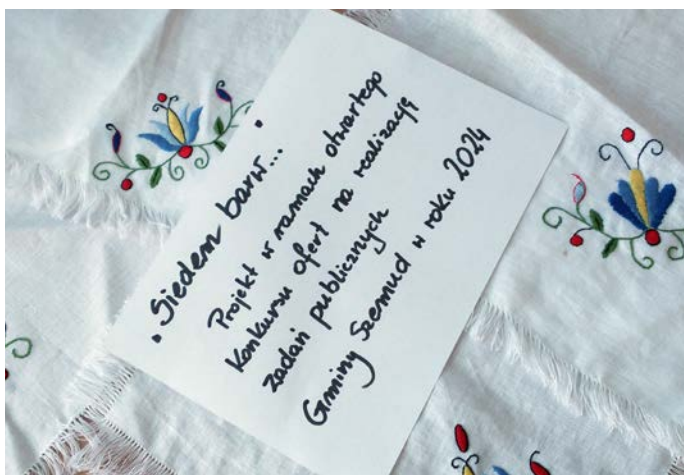 "Siedem barw..."
Projekt w ramach otwartego
Konkursu ofert na realizację
zadań publicznych
Gminy Szemud w roku 2024